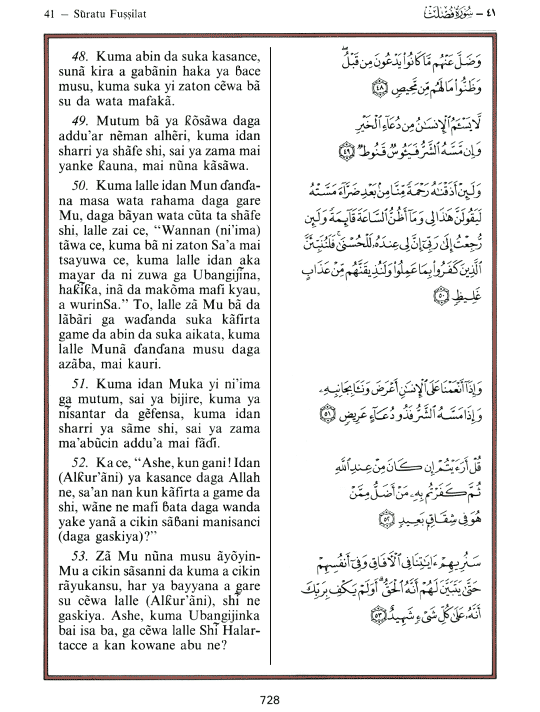 41 — Sūratu Fuṣṣilat
٤١ — سُورَةُ فُصِّلَتْ
48. Kuma abin da suka kasance,
sunã kira a gabãnin haka ya ɓace
musu, kuma suka yi zaton cẽwa bã
su da wata mafakã.
49. Mutum bã ya ƙõsãwa daga
addu'ar nẽman alhẽri, kuma idan
sharri ya shãfe shi, sai ya zama mai
yanke ƙauna, mai nũna kãsãwa.
50. Kuma lalle idan Mun ɗanɗa-
na masa wata rahama daga gare
Mu, daga bãyan wata cũta ta shãfe
shi, lalle zai ce, “Wannan (ni'ima)
tãwa ce, kuma bã ni zaton Sa'a mai
tsayuwa ce, kuma lalle idan aka
mayar da ni zuwa ga Ubangijĩna,
haƙĩƙa, inã da makõma mafi kyau,
a wurinSa.” To, lalle zã Mu bã da
lãbãri ga waɗanda suka kãfirta
game da abin da suka aikata, kuma
lalle Munã ɗanɗana musu daga
azãba, mai kauri.
51. Kuma idan Muka yi ni'ima
ga mutum, sai ya bijire, kuma ya
nĩsantar da gẽfensa, kuma idan
sharri ya sãme shi, sai ya zama
ma'abũcin addu'a mai fãɗi.
52. Ka ce, “Ashe, kun gani! Idan
(Alƙur'ãni) ya kasance daga Allah
ne, sa'an nan kun kãfirta a game da
shi, wãne ne mafi ɓata daga wanda
yake yanã a cikin sãɓani manisanci
(daga gaskiya)?”
53. Zã Mu nũna musu ãyõyin-
Mu a cikin sãsanni da kuma a cikin
rãyukansu, har ya bayyana a gare
su cẽwa lalle (Alƙur'ãni), shĩ ne
gaskiya. Ashe, kuma Ubangijinka
bai isa ba, ga cẽwa lalle Shĩ Halar-
tacce a kan kowane abu ne?
وَضَلَّ عَنْهُم مَّا كَانُوا۟ يَدْعُونَ مِن قَبْلُ ۖ
وَظَنُّوا۟ مَا لَهُم مِّن مَّحِيصٍ ٤٨
لَّا يَسْـَٔمُ ٱلْإِنسَـٰنُ مِن دُعَآءِ ٱلْخَيْرِ
وَإِن مَّسَّهُ ٱلشَّرُّ فَيَـُٔوسٌ قَنُوطٌ ٤٩
وَلَئِنْ أَذَقْنَـٰهُ رَحْمَةً مِّنَّا مِنۢ بَعْدِ ضَرَّآءَ مَسَّتْهُ
لَيَقُولَنَّ هَـٰذَا لِى وَمَآ أَظُنُّ ٱلسَّاعَةَ قَآئِمَةً وَلَئِن
رُّجِعْتُ إِلَىٰ رَبِّىٓ إِنَّ لِى عِندَهُۥ لَلْحُسْنَىٰ ۚ فَلَنُنَبِّئَنَّ
ٱلَّذِينَ كَفَرُوا۟ بِمَا عَمِلُوا۟ وَلَنُذِيقَنَّهُم مِّنْ عَذَابٍ
غَلِيظٍ ٥٠
وَإِذَآ أَنْعَمْنَا عَلَى ٱلْإِنسَـٰنِ أَعْرَضَ وَنَـَٔا بِجَانِبِهِۦ
وَإِذَا مَسَّهُ ٱلشَّرُّ فَذُو دُعَآءٍ عَرِيضٍ ٥١
قُلْ أَرَءَيْتُمْ إِن كَانَ مِنْ عِندِ ٱللَّهِ
ثُمَّ كَفَرْتُم بِهِۦ مَنْ أَضَلُّ مِمَّنْ
هُوَ فِى شِقَاقٍۭ بَعِيدٍ ٥٢
سَنُرِيهِمْ ءَايَـٰتِنَا فِى ٱلْـَٔافَاقِ وَفِىٓ أَنفُسِهِمْ
حَتَّىٰ يَتَبَيَّنَ لَهُمْ أَنَّهُ ٱلْحَقُّ ۗ أَوَلَمْ يَكْفِ بِرَبِّكَ
أَنَّهُۥ عَلَىٰ كُلِّ شَىْءٍ شَهِيدٌ ٥٣
728